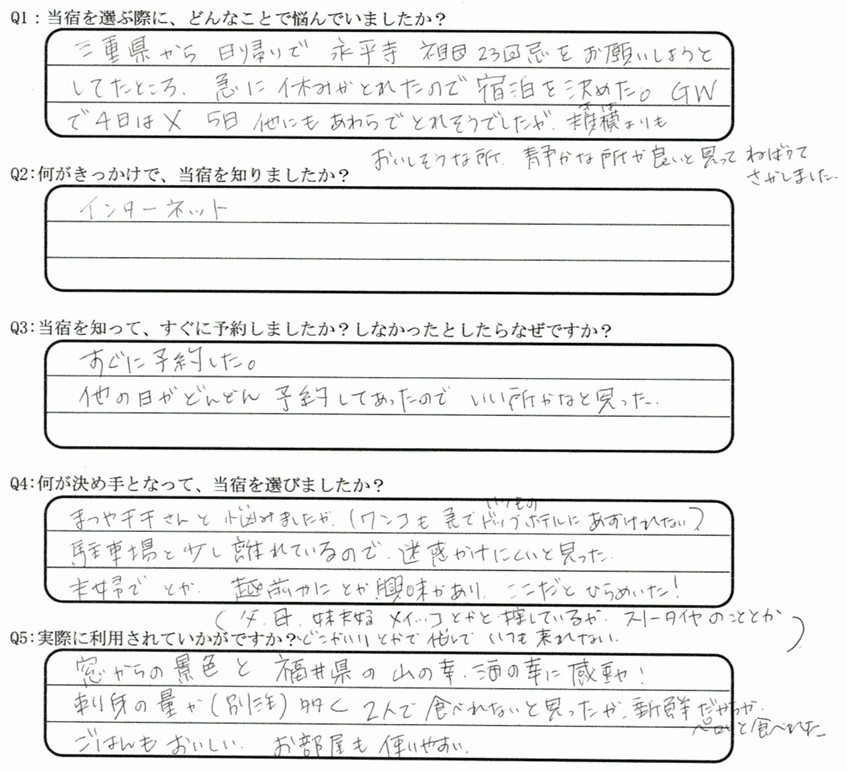 Q1：当宿を選ぶ際に、どんなことで悩んでいましたか？
三重県から 日帰りで 永平寺 祖母23回忌をお願いしようと
してたところ、急に休みがとれたので宿泊を決めた。GW
で4日は× 5日 他にもあわらでとれそうでしたが、
よりも
おいしそうな所、静かな所が良いと思って ねばって
さがしました。
Q2：何がきっかけで、当宿を知りましたか？
インターネット
Q3：当宿を知って、すぐに予約しましたか？しなかったとしたらなぜですか？
すぐに予約した。
他の日がどんどん 予約してあったので いい所かなと思った。
Q4：何が決め手となって、当宿を選びましたか？
いつもの
まつや千千さんと 悩みましたが、（ワンコも 急でドッグホテルにあずけれない）
駐車場と少し離れているので、迷惑かけにくいと思った。
夫婦で とか、越前かにとか興味があり、ここだと ひらめいた！
（父、母、妹夫婦 メイッコとかと 探しているが、スノータイヤのこととか
どこがいいとかで 悩んで いつも 来れない。）
Q5：実際に利用されていかがですか？
窓からの景色と 福井県の 山の幸、海の幸に感動！
刺身の量が（別注）多く 2人で食べれないと思ったが、新鮮だからか、
ペロッと食べれた
ごはんもおいしい。お部屋も 使いやすい。